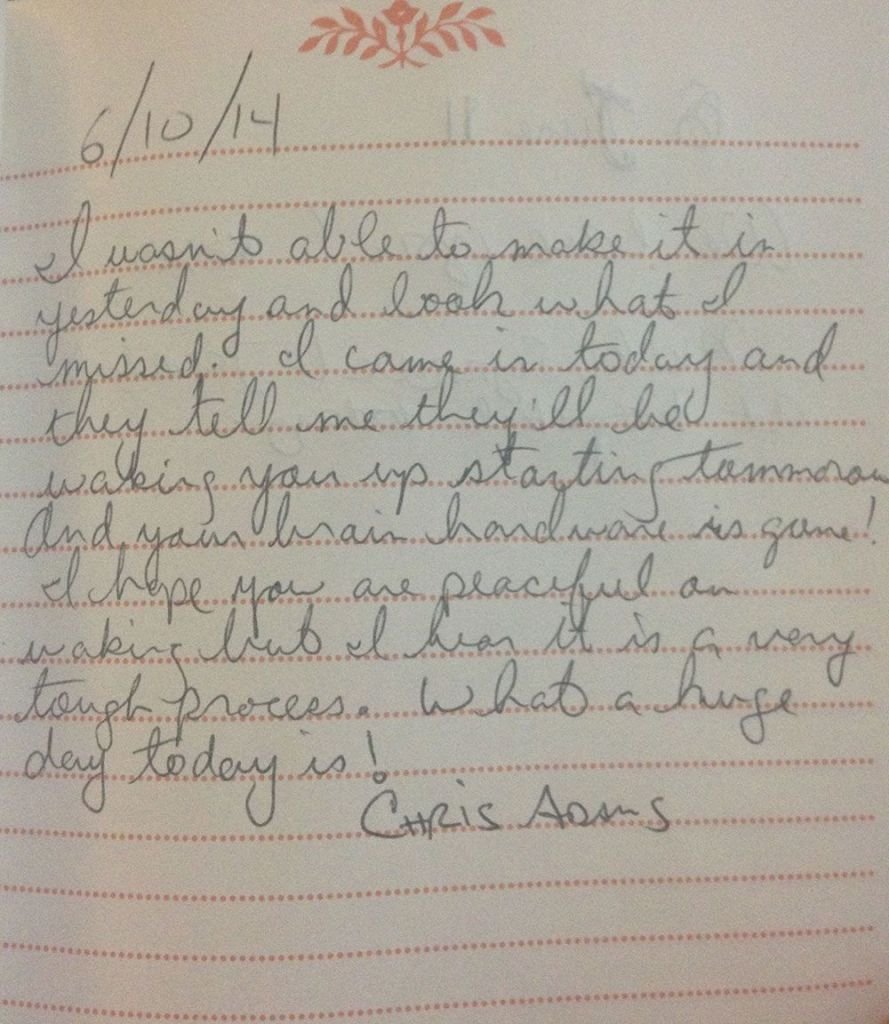 6/10/14
I wasn't able to make it in
yesterday and look what I
missed. I came in today and
they tell me they'll be
waking you up starting tommorow
And your brain hardware is gone!
I hope you are peaceful on
waking but I hear it is a very
tough process. What a huge
day today is!
CHRIS ADAMS